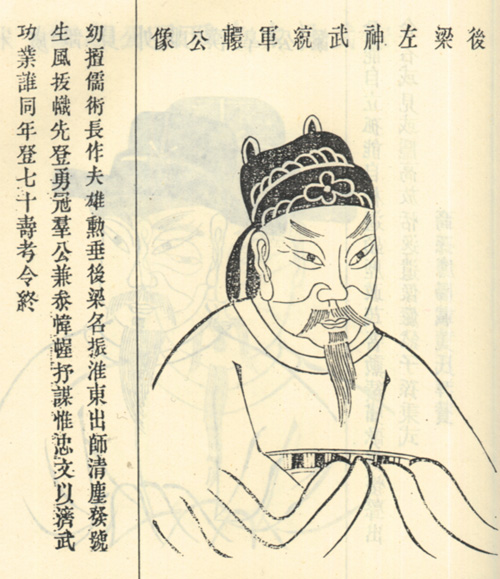 後梁左神武統軍公像
幼擅儒術長作夫雄勳垂後梁名振淮東出師清塵發號
生風拔幟先登勇冠羣公兼叅幃幄抒謀惟忠文以濟武
功業誰同年登七十壽考令終